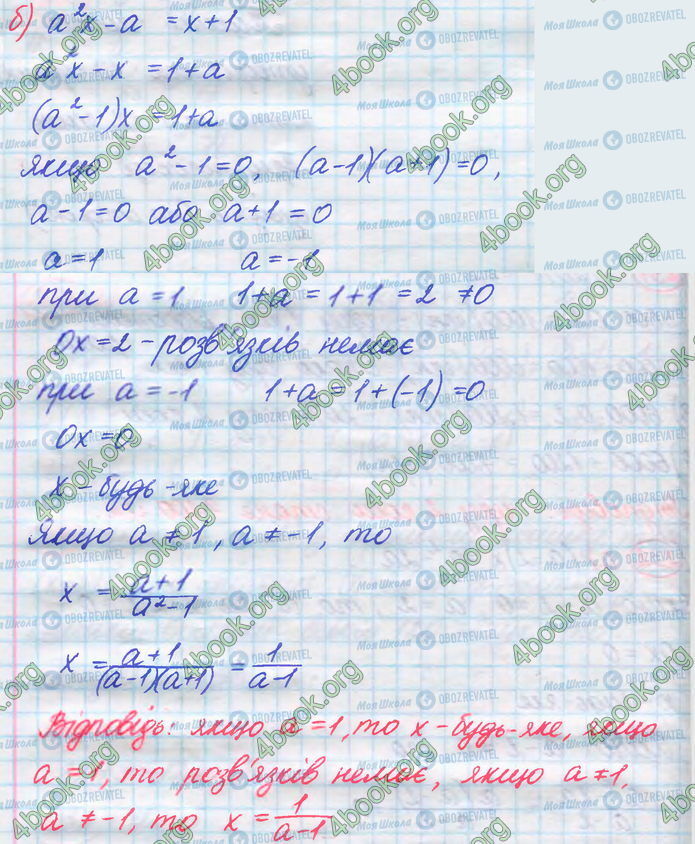 б) a²x - a = x + 1
a²x - x = 1 + a
(a² - 1)x = 1 + a
якщо a² - 1 = 0, (a - 1)(a + 1) = 0,
a - 1 = 0 або a + 1 = 0
a = 1 a = -1
при a = 1 1 + a = 1 + 1 = 2 ≠ 0
0x = 2 - розв'язків немає
при a = -1 1 + a = 1 + (-1) = 0
0x = 0
x - будь-яке
Якщо a ≠ 1, a ≠ -1, то
x = (a + 1)/(a² - 1)
x = (a + 1)/((a - 1)(a + 1)) = 1/(a - 1)
Відповідь: якщо a = 1, то x - будь-яке, якщо
a = 1, то розв'язків немає, якщо a ≠ 1,
a ≠ -1, то x = 1/(a - 1)
4book.org
Моя Школа OBOZREVATEL